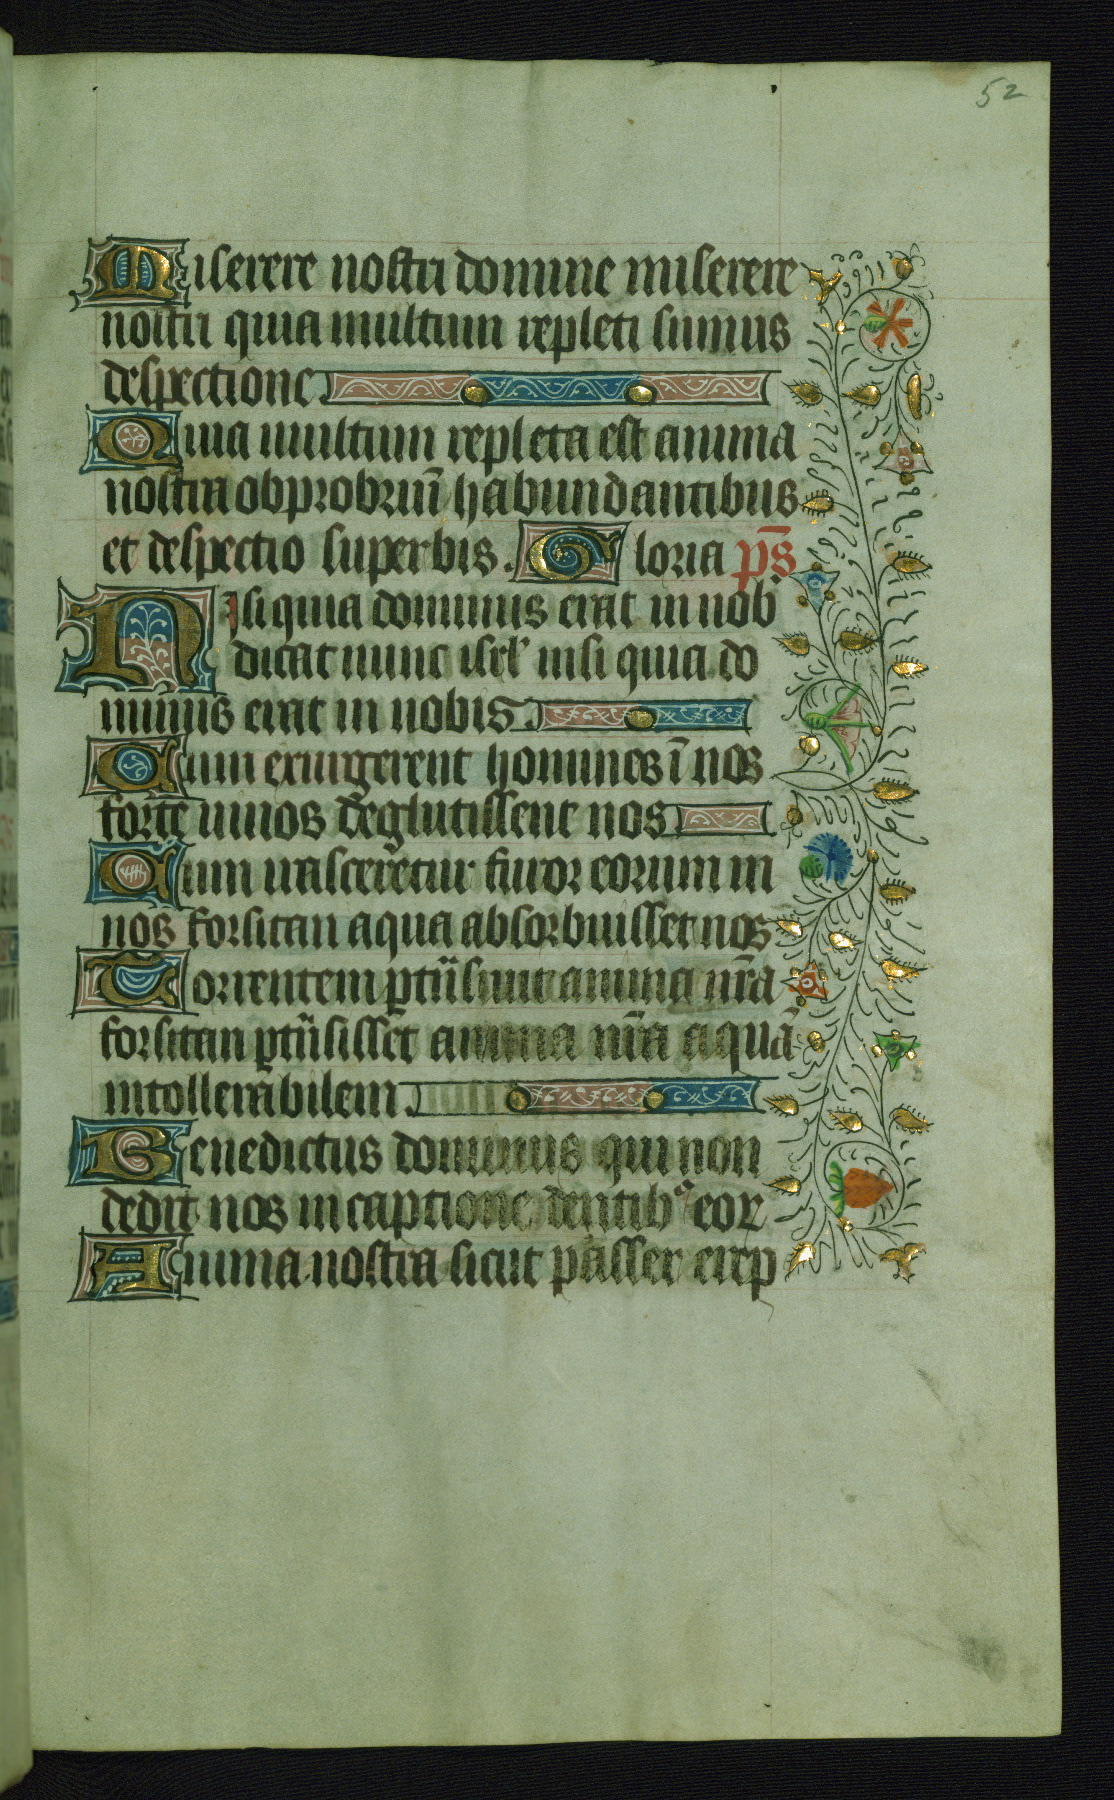 52
Miserere nostri domine miserere
nostri quia multum repleti sumus
despectione
Quia multum repleta est anima
nostra obprobriū habundantibus
et despectio superbis. Gloria ps̄
Nisi quia dominus erat in nob'
dicat nunc isrl' nisi quia do
minus erat in nobis
Cum exurgerent homines ī nos
forte uiuos deglutissent nos
Cum irasceretur furor eorum in
nos forsitan aqua absorbuisset nos
Torrentem ꝑtīisiuit anima nr̄a
forsitan ꝑtīisisset anima nr̄a aquā
intollerabilem.
Benedictus dominus qui non
dedit nos in captione dentibꝰ eoꝝ
Anima nostra sicut passer erep